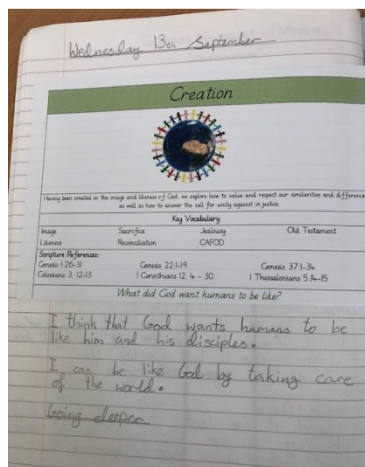 Wednesday 13th September
Creation
Having been created in the image and likeness of God, we explore how to value and respect our similarities and difference
as well as how to answer the call for unity against in justice.
Key Vocabulary:
Image Sacrifice Jealousy Old Testament
Likeness Reconciliation CAFOD
Scripture References:
Genesis 1:26-31 Genesis 22:1-19 Genesis 37:1-36
Colossians 3: 12-13 1 Corinthians 12: 4 - 30 1 Thessalonians 5:14-15
What did God want humans to be like?
I think that God wants humans to be
like him and his disciples.
I can be like God by taking care
of the world.
Going deeper